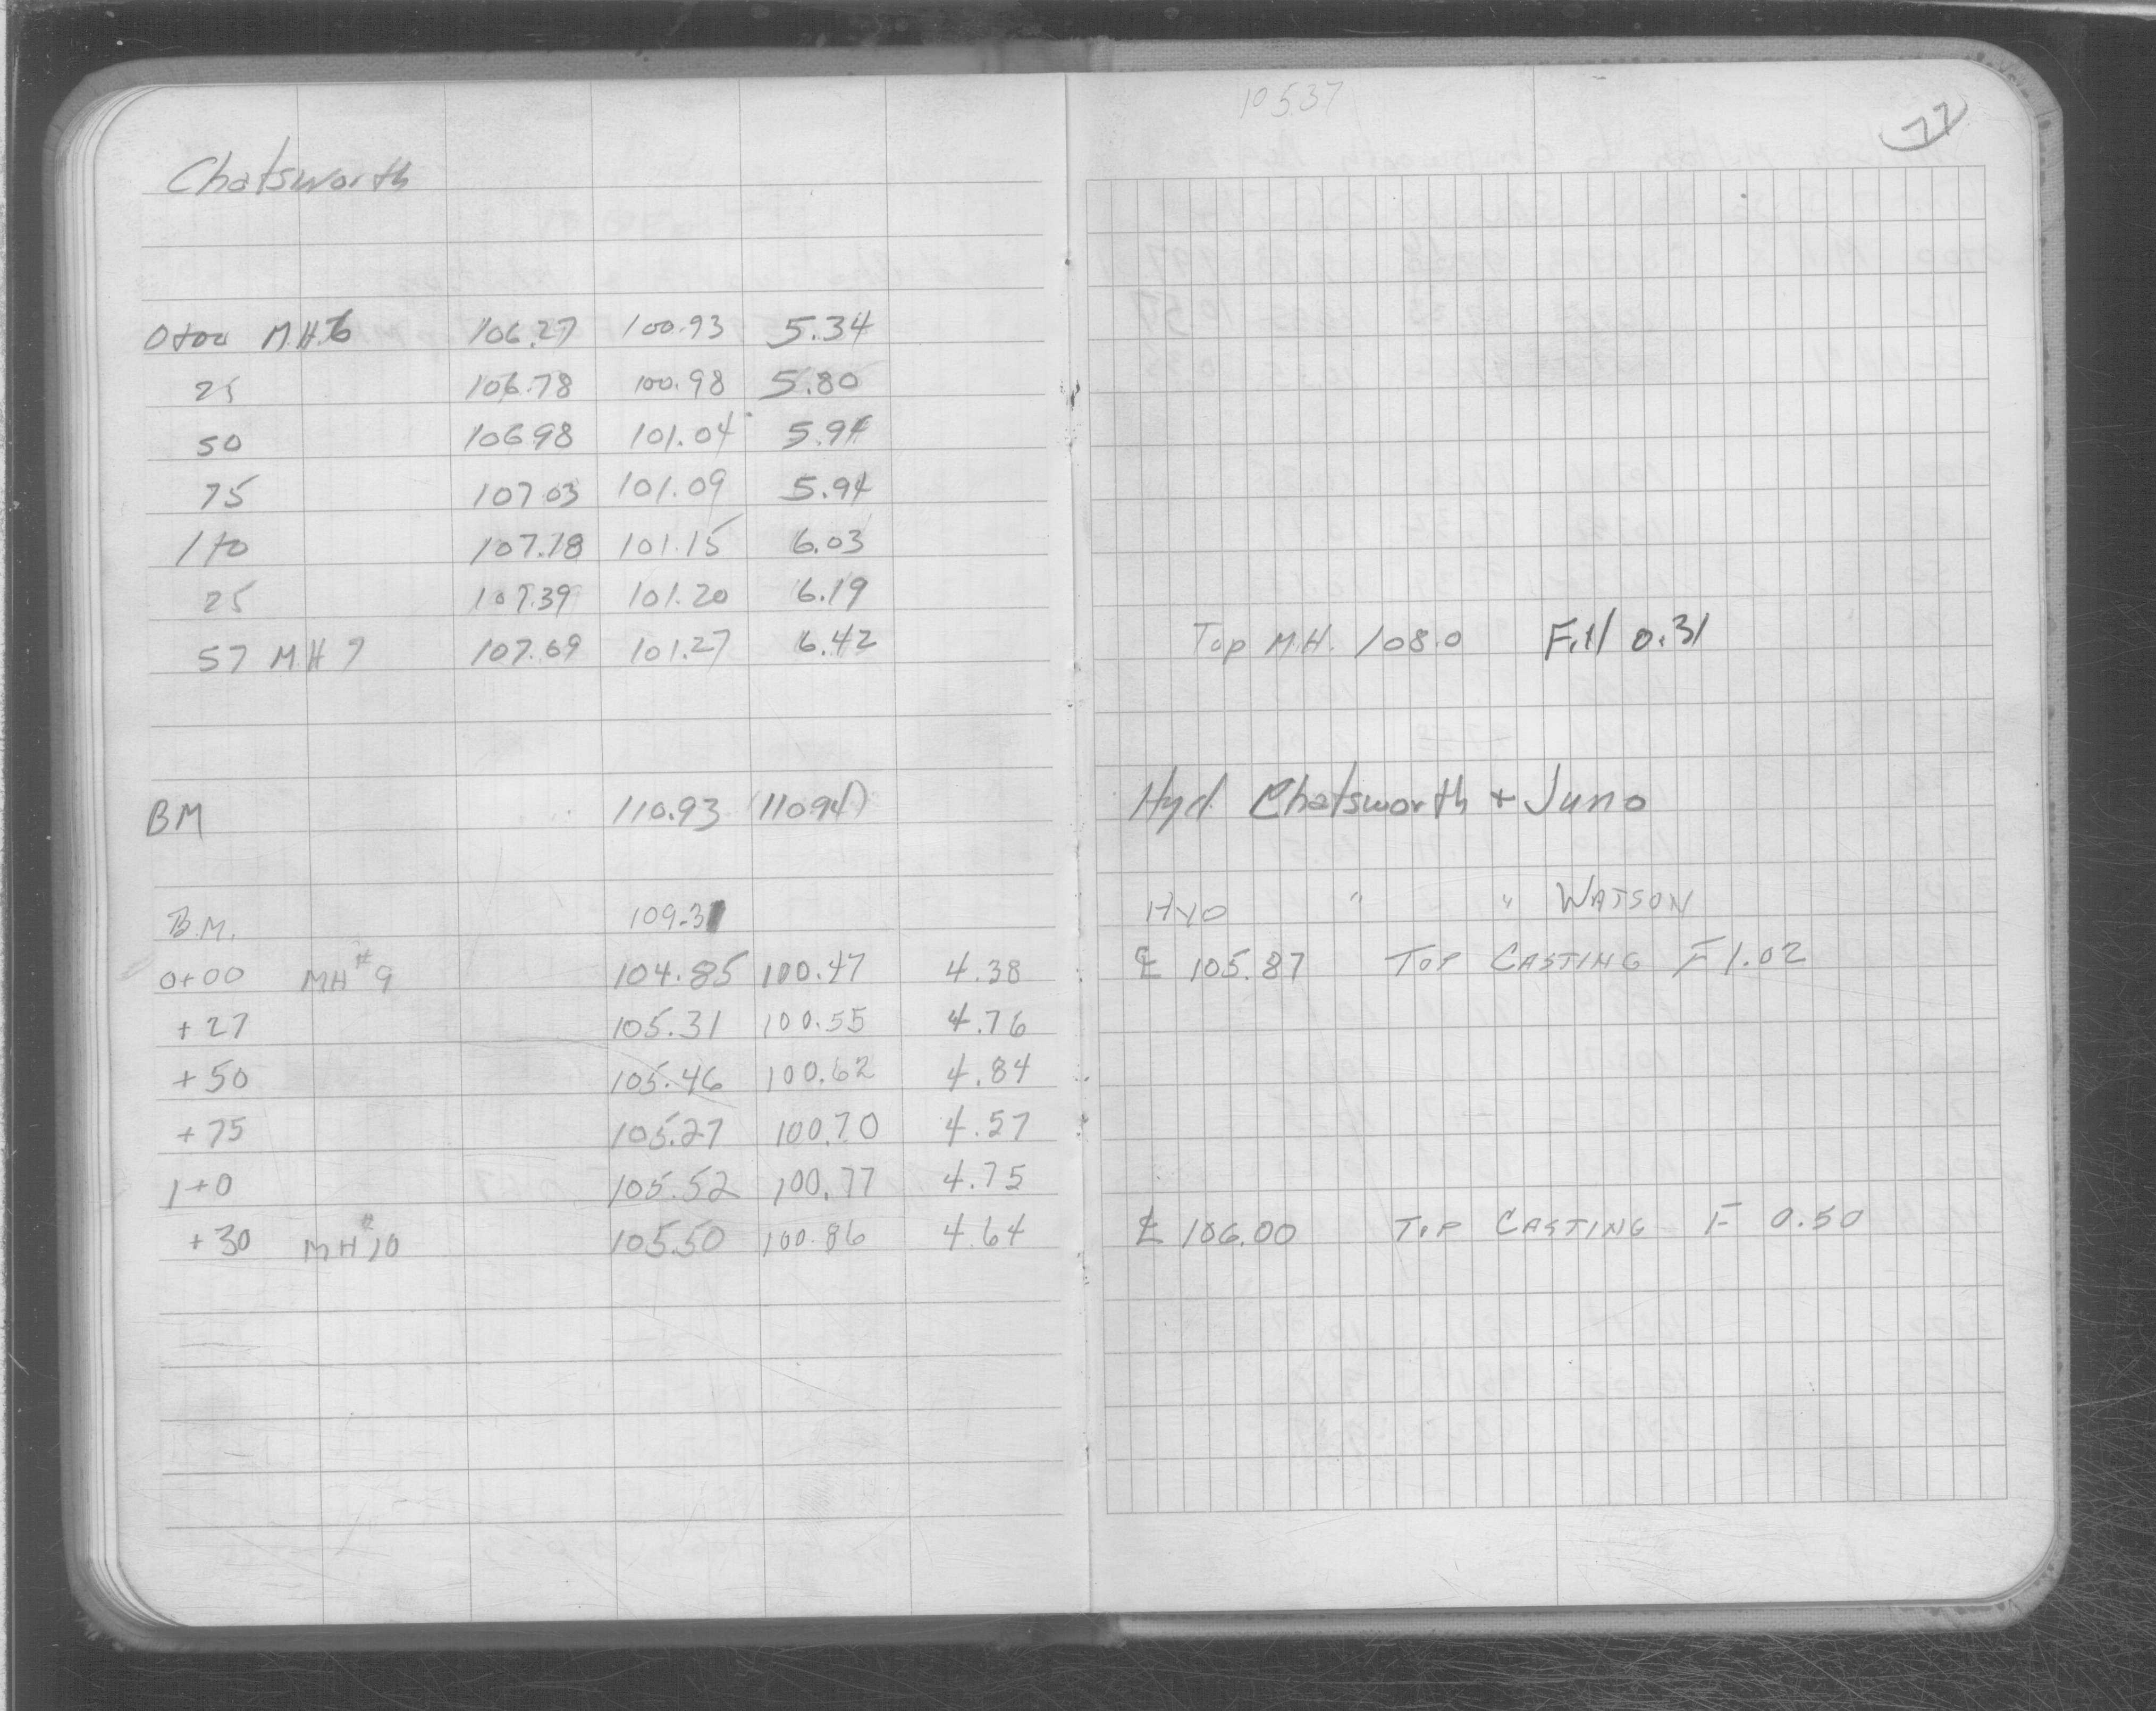 Chatsworth
0+00 M.H.6 106.27 100.93 5.34
25 106.78 100.98 5.80
50 106.98 101.04 5.94
75 107.03 101.09 5.94
1+0 107.18 101.15 6.03
25 107.39 101.20 6.19
57 M.H 7 107.69 101.27 6.42
BM 110.93 (110.94)
B.M. 109.31
0+00 MH#9 104.85 100.47 4.38
+27 105.31 100.55 4.76
+50 105.46 100.62 4.84
+75 105.27 100.70 4.57
1+0 105.52 100.77 4.75
+30 MH#10 105.50 100.86 4.64
105.37
77
Top M.H. 108.0 Fill 0.31
Hyd Chatsworth + Juno
HYD " " WATSON
℄ 105.87 TOP CASTING F 1.02
℄ 106.00 TOP CASTING F 0.50